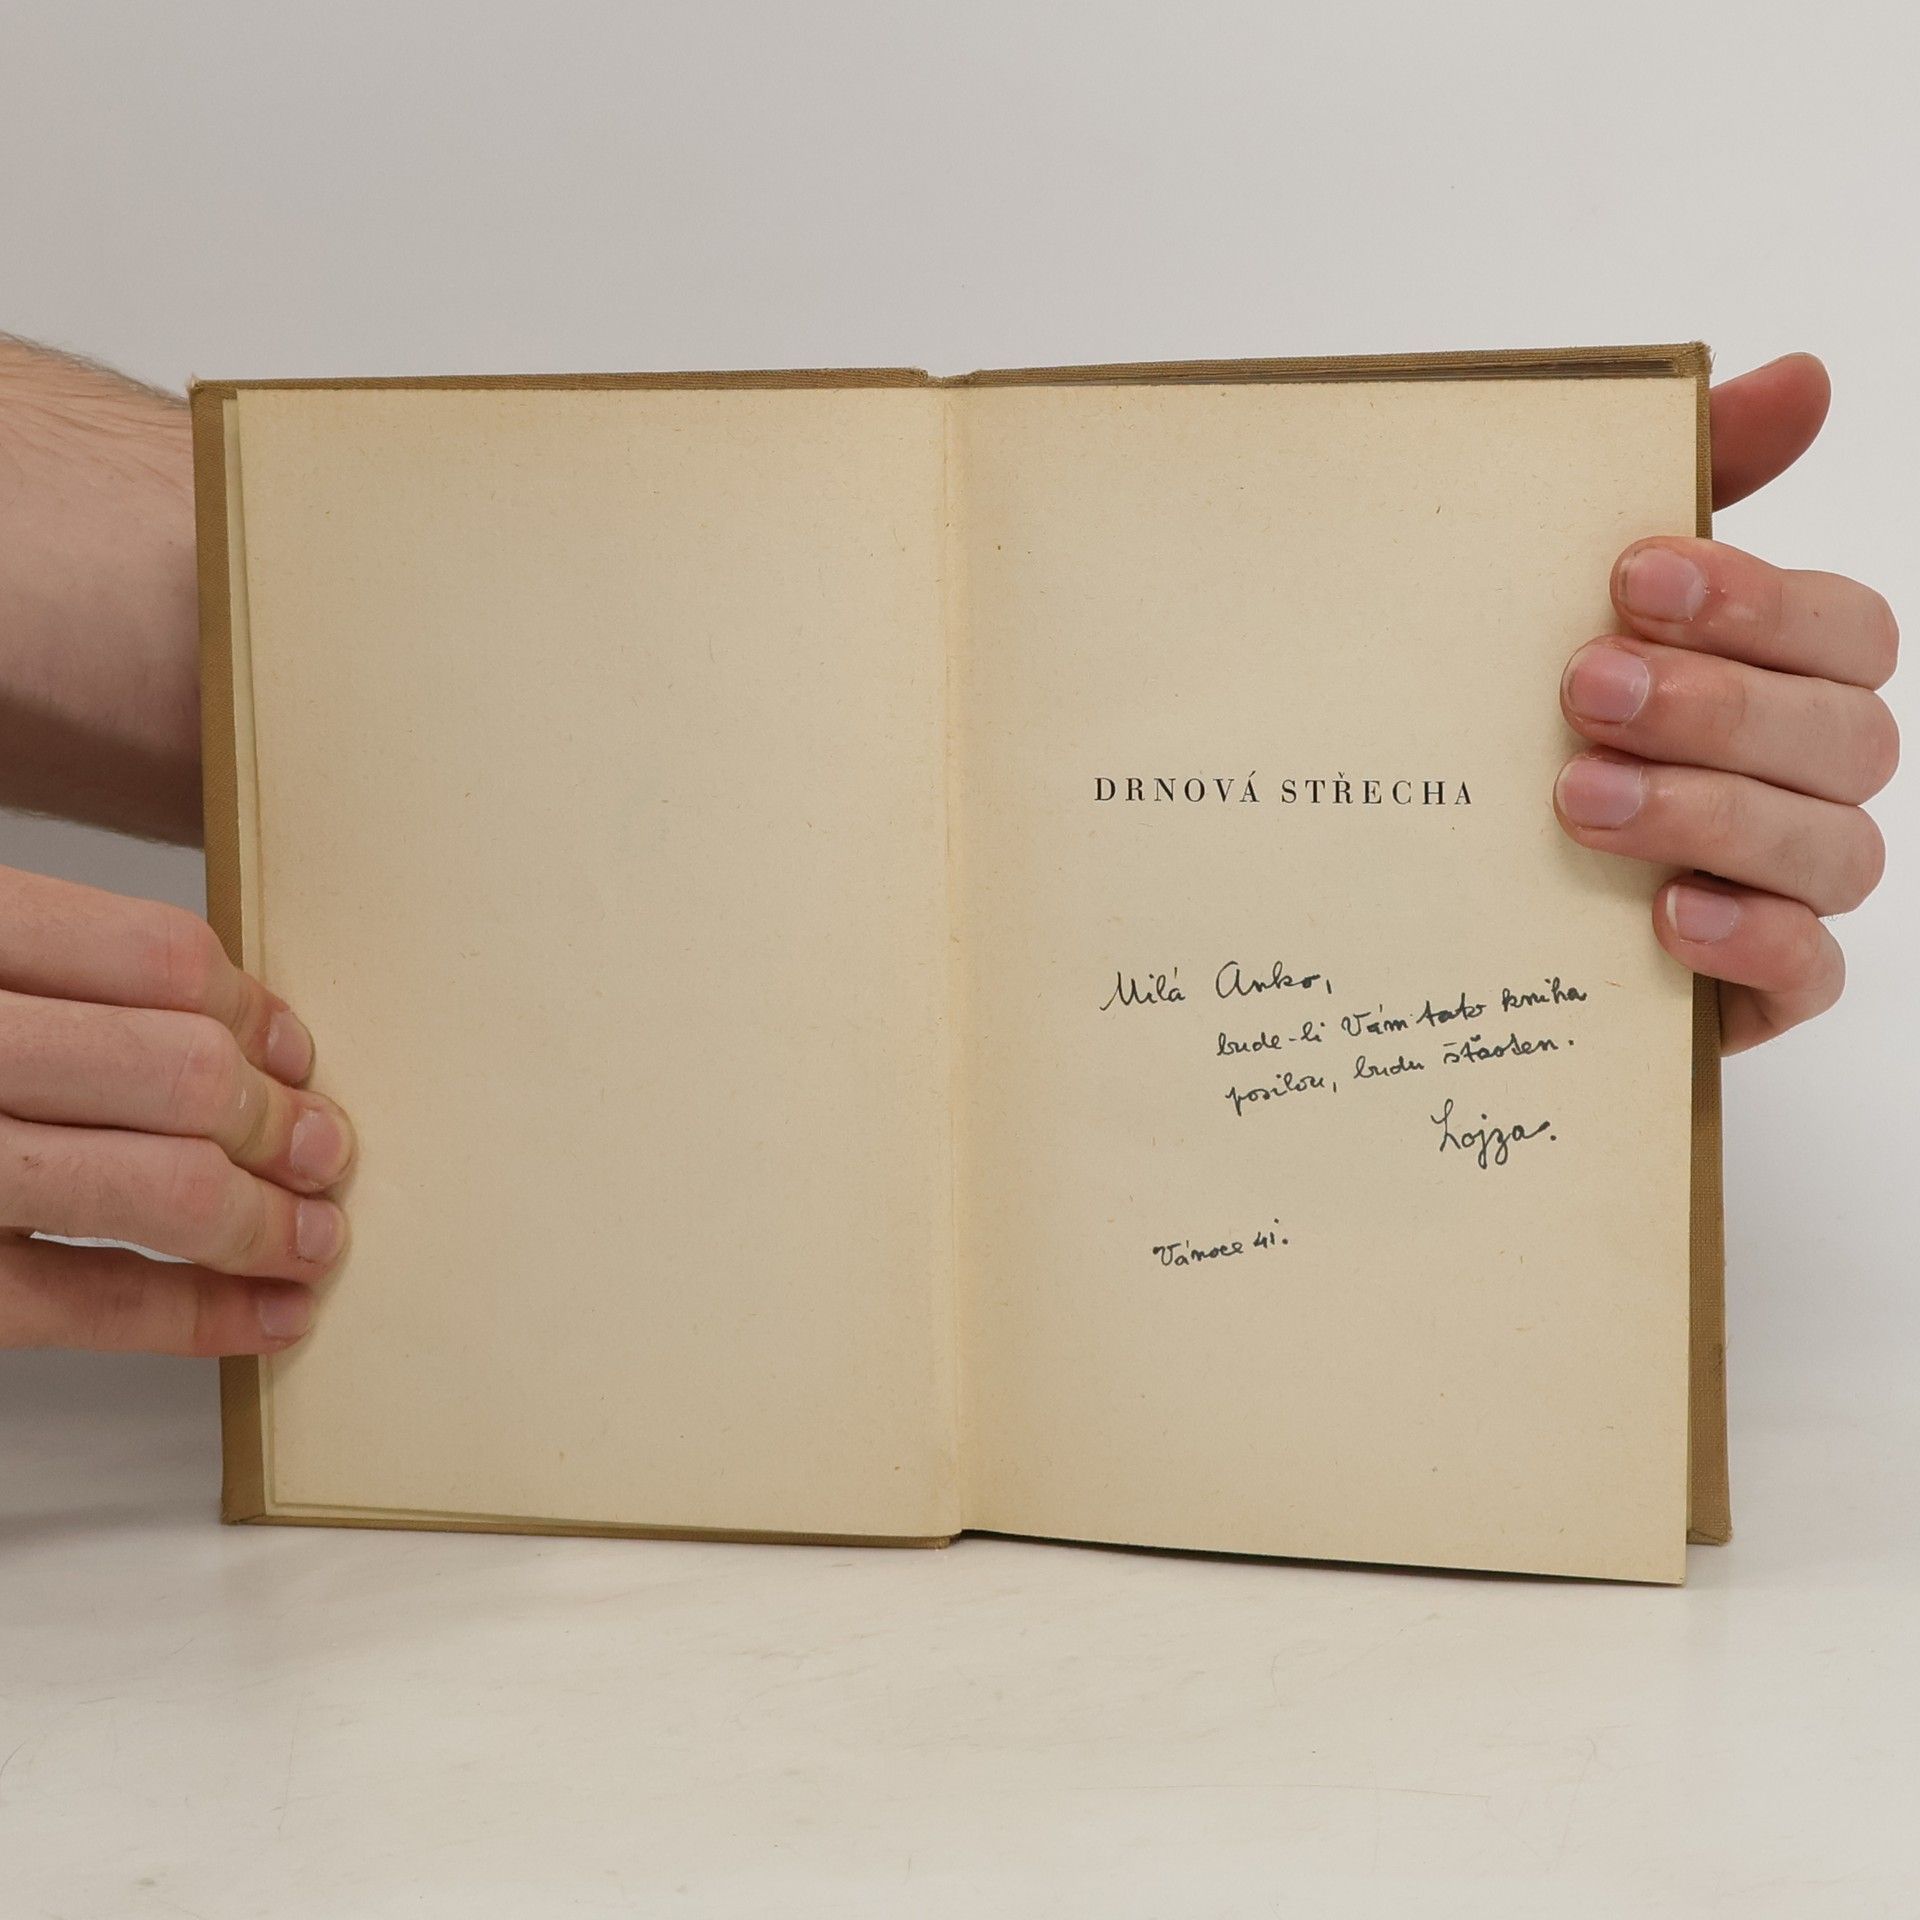 DRNOVÁ STŘECHA
Milá Anko,
bude-li Vám tato kniha
posilou, budu šťasten.
Lojza.
Vánoce 41.